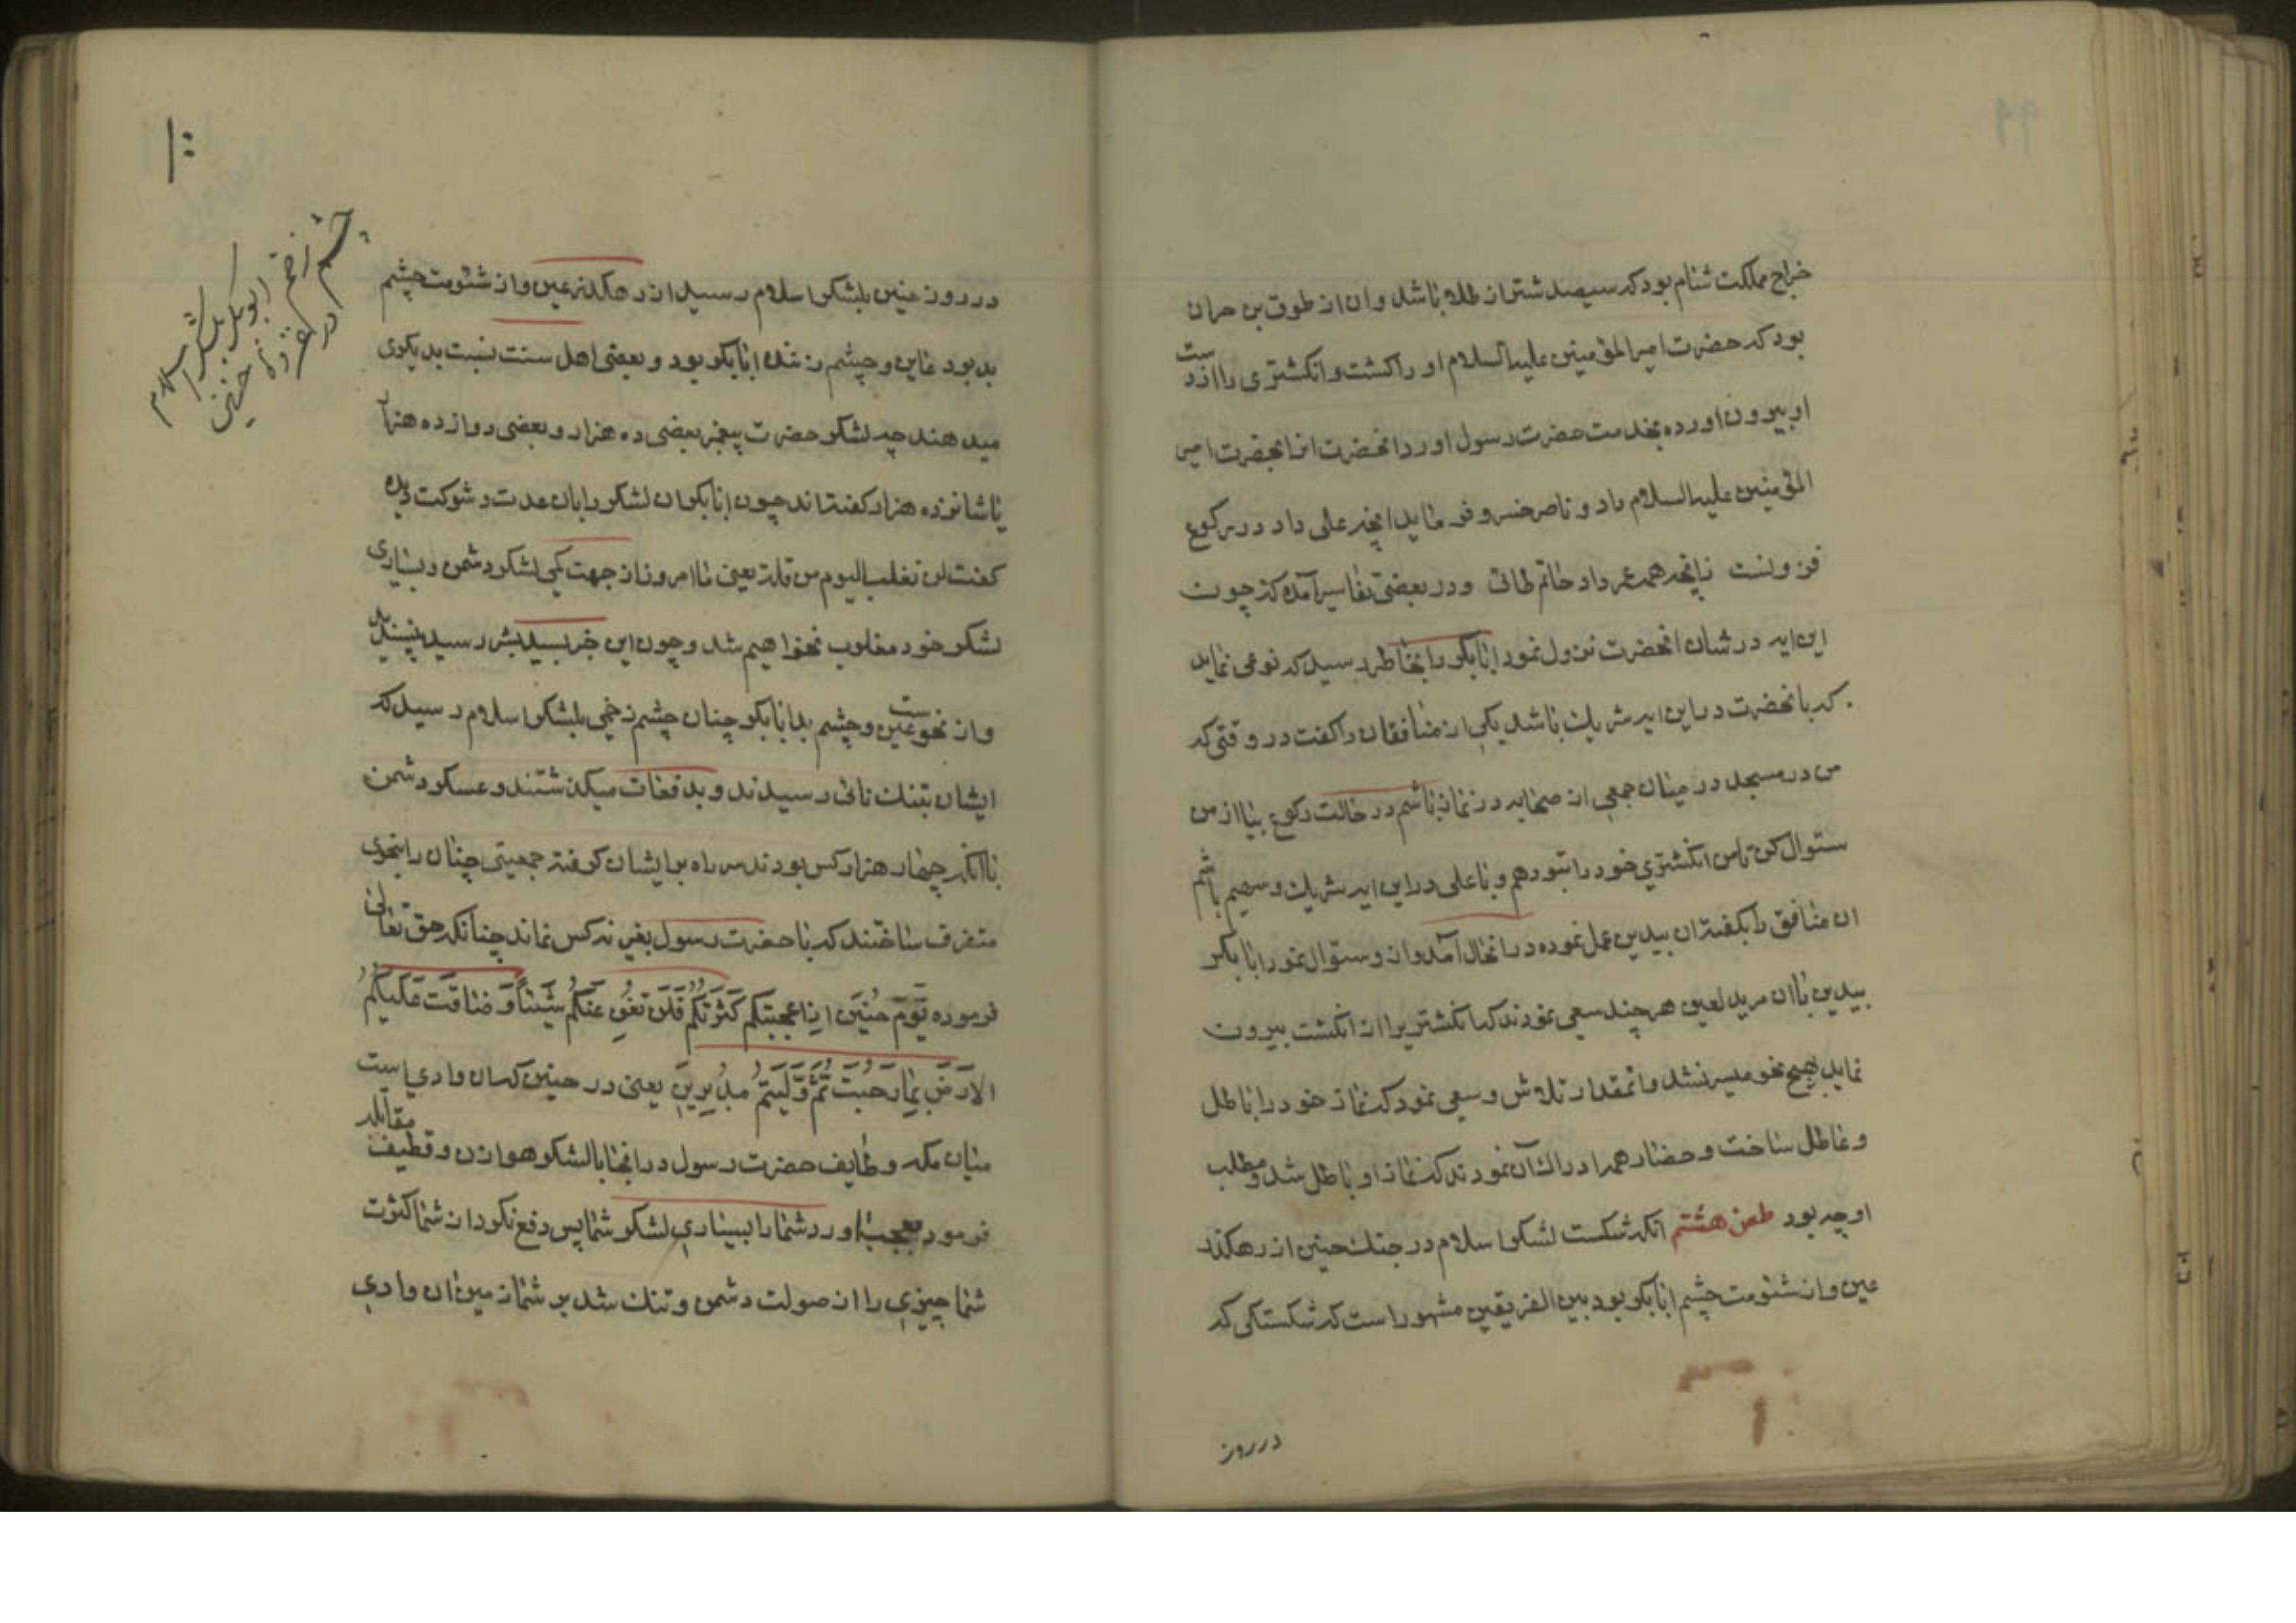 خراج مملکت شام بود که سیصد شتر از طلا باشد و ان از طوق بن حران
بود که حضرت امیر المؤمنین علیه السلام او را کشت و انکشتری را از دست
او بیرون اورده بخدمت حضرت رسول اورد انحضرت انرا بحضرت امیر
المؤمنین علیه السلام داد و ناصر خسرو فرماید انچه علی داد در رکوع
فزونست زانچه همه عمر داد حاتم طائی و در بعضی تفاسیر آمده که چون
این ایه در شان انحضرت نزول نمود ابابکر را بخاطر رسید که نوعی نماید
که با نحضرت در این ایه شریک باشد یکی از منافقان را کفت در وقتی که
من در مسجد در میان جمعی از صحابه در نماز باشم در حالت رکوع بیا از من
سئوال کن تا من انکشتری خود را بتو دهم و با علی در این ایه شریک و سهیم باشم
ان منافق را بکفته ان بیدین عمل نموده در انحال آمد و از و سئوال نمود ابابکر
بیدین با ان مرید لعین هر چند سعی نمودند که انکشتر را از انکشت بیرون
نماید بهیچ نحو میسر نشد و انمقدار تلاش و سعی نمود که نماز خود را باطل
و عاطل ساخت و حضار همه ادراک آن نمودند که نماز او باطل شد و مطلب
او چه بود طعن هشتم انکه شکست لشکر اسلام در جنک حنین از رهکذر
عین و از شئومت چشم ابابکر بود بین الفریقین مشهور است که شکستکی که
در روز
در روز حنین بلشکر اسلام رسید از رهکذر عین و از شئومت چشم
بد بود عاین و چشم زننده ابابکر بود و بعضی اهل سنت نسبت بدیکری
میدهند چه لشکر حضرت پیغمبر بعضی ده هزار و بعضی دوازده هزار
یا شانزده هزار کفته اند چون ابابکر ان لشکر را بان عدت و شوکت دید
کفت لن نغلب الیوم من قلة یعنی ما امروز از جهت کمی لشکر دشمن و بسیاری
لشکر خود مغلوب نخواهیم شد و چون این خبر بسید بشر رسید نپسندید
و از نحوست عین و چشم بد ابابکر چنان چشم زخمی بلشکر اسلام رسید که
ایشان بتنک نائی رسیدند و بدفعات میکذشتند و عسکر دشمن
با انکه چهار هزار کس بودند سر راه بر ایشان کرفته جمعیتی چنان را بنحوی
متفرق ساختند که با حضرت رسول بغیر نه کس نماند چنانکه حق تعالی
فرموده یَوْمَ حُنَیْنٍ اِذْ اَعْجَبَتْکُمْ کَثْرَتُکُمْ فَلَنْ تُغْنِ عَنْکُمْ شَیْئاً وَ ضَاقَتْ عَلَیْکُمُ
الاَرْضُ بِمَا رَحُبَتْ ثُمَّ وَلَّیْتُمْ مُدْبِرِینَ یعنی در حنین که ان وادی است
میان مکه و طایف حضرت رسول در انجا با لشکر هوازن و قطیف مقابله
فرمود بعجب اورد شما را بسیاری لشکر شما پس دفع نکرد از شما کثرت
شما چیزی را از صولت دشمن و تنک شد بر شما زمین ان وادی
۱۰۰
چشم زخم ابوبکر بلشکر اسلام
در غزوه حنین